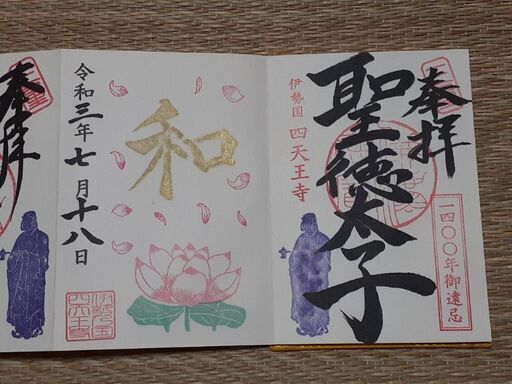 奉拝
聖徳太子
一四〇〇年御遠忌
伊勢国 四天王寺
和
令和三年七月十八日
伊勢国
四天王寺
奉拝